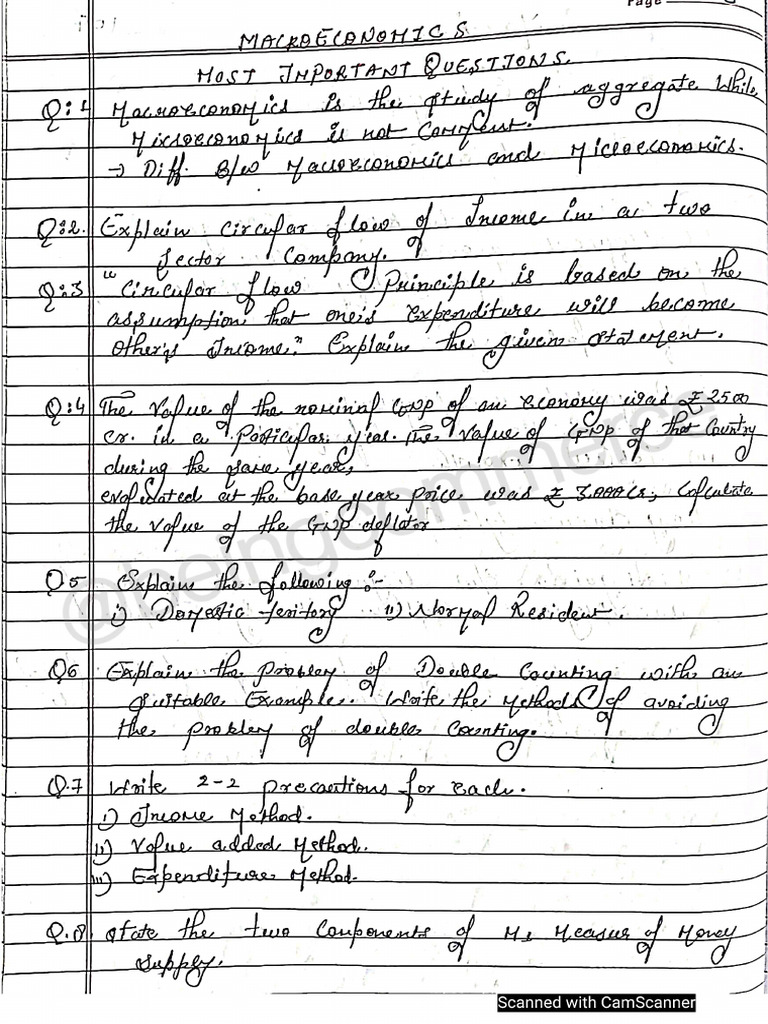 Page
MACROECONOMICS
MOST IMPORTANT QUESTIONS.
Q:1 Macroeconomics is the study of aggregate while
Microeconomics is not Comment.
→ Diff. B/w Macroeconomics and Microeconomics.
Q:2. Explain circular flow of Income in a two
Sector Company.
Q:3 "Circular flow Principle is based on the
assumption that one's expenditure will become
other's Income." Explain the given statement.
Q:4 The value of the nominal GNP of an economy was ₹ 2500
cr. in a Particular year. The value of GNP of that Country
during the same year,
evaluated at the base year price was ₹ 3000 cr, Calculate
the value of the GNP deflator
@beingcommerce
Q5 Explain the following :-
i) Domestic teritory ii) Normal Resident.
Q6 Explain the problem of Double Counting with an
suitable Example. Write the methods of avoiding
the problem of double Counting.
Q.7 Write 2-2 precautions for each.
i) Income Method.
ii) Value added Method.
iii) Expenditure Method.
Q.8 State the two Components of M1 Measur of Money
Supply.
Scanned with CamScanner